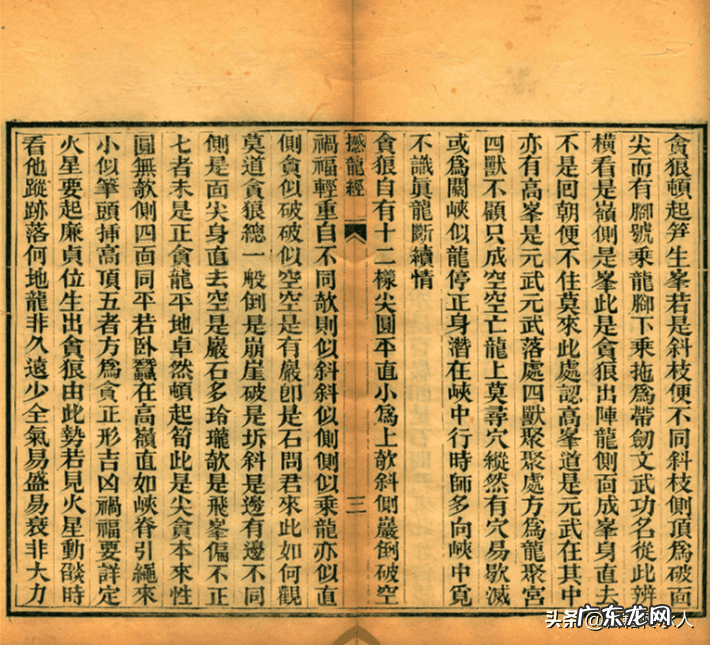 貪狼頓起笋生峯若是斜枝便不同斜枝側頂爲破面
尖而有腳號乗龍腳下乗拖爲帶劒文武功名從此辨
橫看是嶺側是峯此是貪狼出陣龍側面成峯身直去
不是回朝便不住莫來此處認高峯道是元武在其中
亦有高峯是元武元武落處四獸聚聚處方爲龍聚宮
四獸不顧只成空空亡龍上莫尋穴縱然有穴易歇滅
或爲關峽似龍停正身潛在峽中行時師多向峽中覔
不識眞龍斷續情
貪狼自有十二樣尖圓平直小爲上欹斜側巖倒破空
撼龍經
三
禍福輕重自不同欹則似斜斜似側側似乗龍亦似直
側貪似破破似空空是有巖卽是石問君來此如何觀
莫道貪狼總一般倒是崩崖破是坼斜是邊有邊不同
側是面尖身直去空是巖石多玲瓏欹是飛峯偏不正
七者未是正貪龍平地卓然頓起筍此是尖貪本來性
圓無欹側四面同平若卧蠶在高嶺直如峽脊引繩來
小似筆頭揷高頂五者方爲貪正形吉凶禍福要詳定
火星要起廉貞位生出貪狼由此勢若見火星動燄時
看他蹤跡落何地龍非久遠少全氣易盛易衰非大力
头条
广东龙网
人